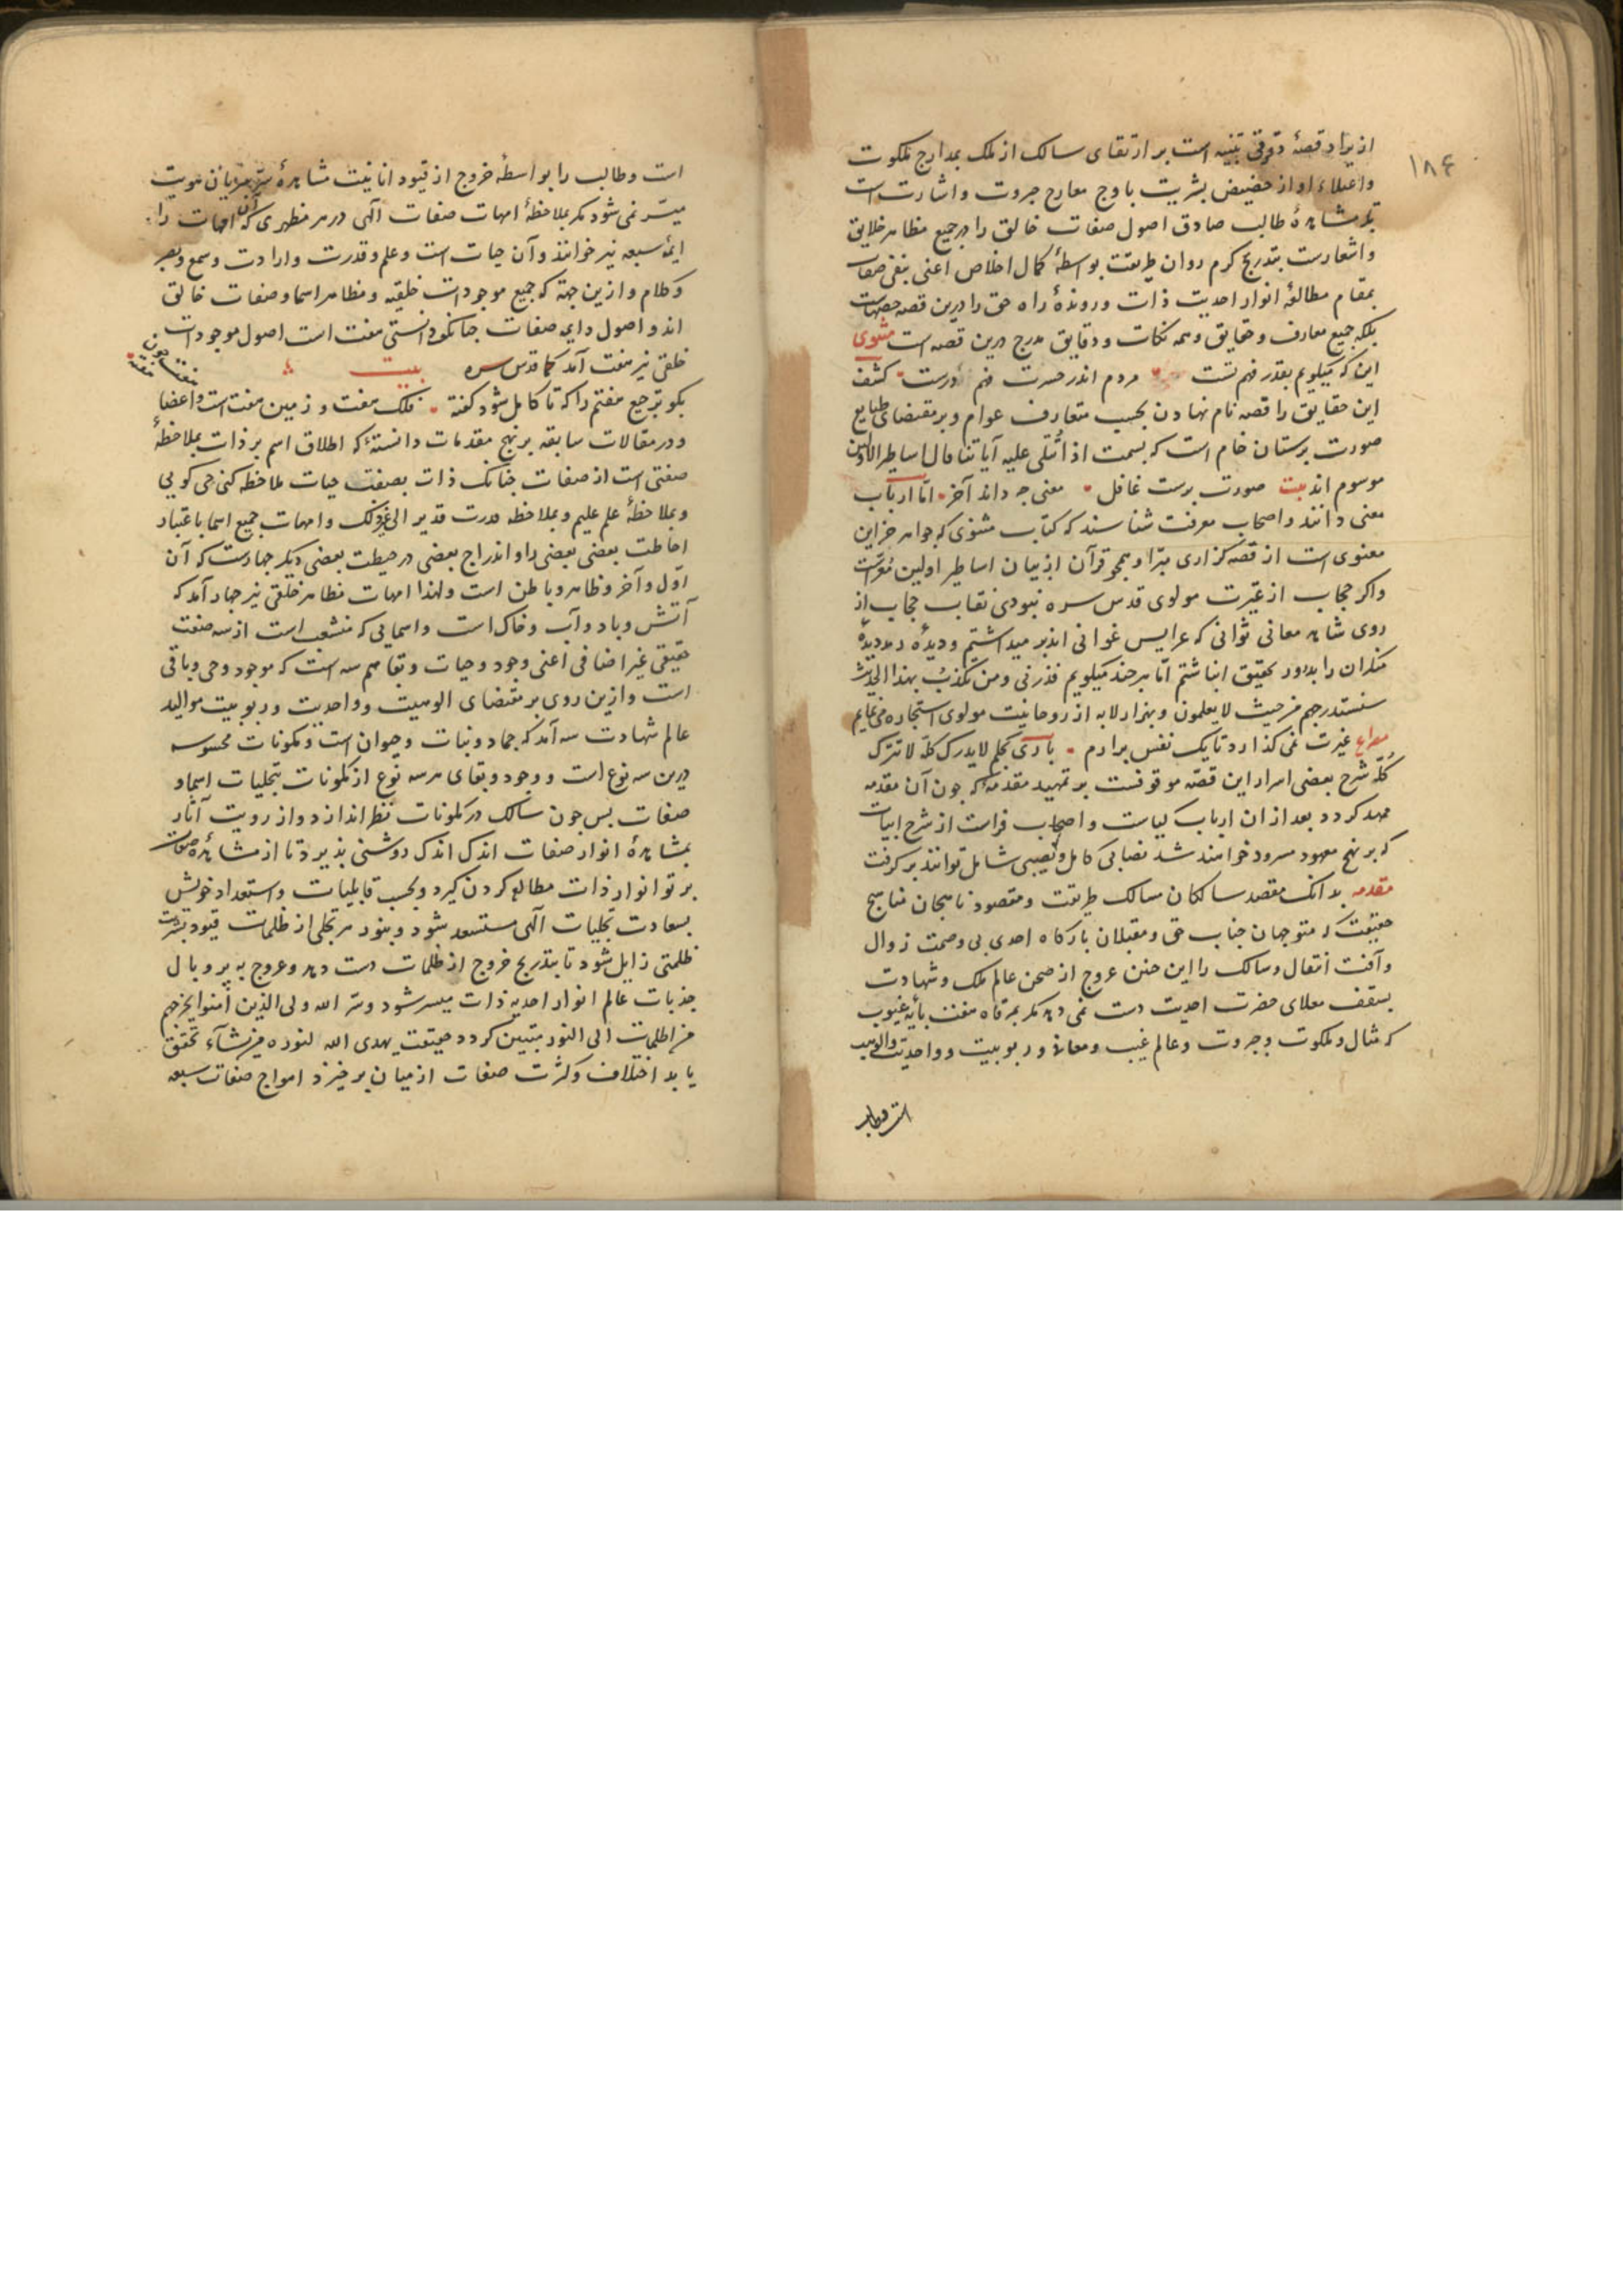 ۱۸۶
از ایراد قصهٔ دقوقی تنبیه است بر ارتقای سالک از ملک بمدارج ملکوت
واعتلاء او از حضیض بشریت باوج معارج جبروت واشارت است
بر مشاهدهٔ طالب صادق اصول صفات خالق را در جمیع مظاهر خلایق
واشعارست بتدریج کرم روان طریقت بواسطهٔ کمال اخلاص اعنی بنفی صفات
بمقام مطالعهٔ انوار احدیت ذات وروندهٔ راه حق را درین قصه حصهاست
بلکه جمیع معارف وحقایق وهمه نکات ودقایق مدرج درین قصه است مثنوی
این که میکویم بقدر فهم تست مردم اندر حسرت فهم درست کشف
این حقایق را قصه نام نهادن بحسب متعارف عوام وبر مقتضای طبایع
صورت پرستان خام است که بسمت اذا تتلی علیه آیاتنا قال اساطیر الاولین
موسوم اند بیت صورت پرست غافل معنی جه داند آخر اما ارباب
معنی دانند واصحاب معرفت شناسند که کتاب مثنوی که جواهر خزاین
معنوی است از قصه کزاری مبرا وهمجو قرآن از بیان اساطیر اولین معراست
واکر حجاب از غیرت مولوی قدس سره نبودی نقاب حجاب از
روی شاهد معانی ثوانی که عرایس غوانی اند بر میداشتم ودیدهٔ رمد دیدهٔ
منکران را بدرور تحقیق انباشتم اما هر جند میکویم فذرنی ومن یکذب بهذا الحدیث
سنستدرجهم من حیث لا یعلمون وبهزار لابه از روحانیت مولوی استجازه می نمایم
مصراع غیرت نمی کذارد تا یک نفس برارم باری بحکم لا یدرک کله لا تترک
کله شرح بعضی اسرار این قصه موقوفست بر تمهید مقدمه که جون آن مقدمه
ممهد کردد بعد از ان ارباب کیاست واصحاب فراست از شرح ابیات
که بر نهج معهود مسرود خواهند شد نصابی کامل ونصیبی شامل توانند بر کرفت
مقدمه بدانک مقصد سالکان مسالک طریقت ومقصود ناهجان مناهج
حقیقت که متوجهان جناب حق ومقبلان بارکاه احدی بی وصمت زوال
وآفت انتقال وسالک را این جنین عروج از صحن عالم ملک وشهادت
بسقف معلای حضرت احدیت دست نمی دهد مکر بمرقاه هفت پایه غیوب
که مثال وملکوت وجبروت وعالم غیب ومعانی وربوبیت وواحدیت والوهیت
است وطالب
است وطالب را بواسطهٔ خروج از قیود انانیت مشاهدهٔ سر سریان هویت
میسر نمی شود مکر بملاحظهٔ امهات صفات الهی در هر مظهری که آن امهات را
ایمهٔ سبعه نیز خوانند وآن حیات است وعلم وقدرت وارادت وسمع وبصر
وکلام وازین جهة که جمیع موجودات خلقیه ومظاهر اسما وصفات خالق
اند واصول این صفات جنانکه دانستی هفت است اصول موجودات
خلقی نیز هفت آمد کما قدس سره بیت
بکو ترجیع هفتم را که تا کامل شود کفته فلک هفت وزمین هفت است واعضا
هفت جون هفته
ودر مقالات سابقه بر نهج مقدمات دانستهٔ که اطلاق اسم بر ذات بملاحظهٔ
صفتی است از صفات جنانک ذات بصفت حیات ملاحظه کنی حی کویی
وبملاحظهٔ علم علیم وبملاحظه قدرت قدیر الی غیر ذلک وامهات جمیع اسما باعتبار
احاطت بعضی بعضی را واندراج بعضی در حیطت بعضی دیکر جهارست که آن
اول وآخر وظاهر وباطن است ولهذا امهات مظاهر خلقی نیز جهار آمد که
آتش وباد وآب وخاک است واسمایی که منشعب است از سه صفت
حقیقی غیر اضافی اعنی وجود وحیات وبقا هم سه است که موجود وحی وباقی
است وازین روی بر مقتضای الوهیت وواحدیت وربوبیت موالید
عالم شهادت سه آمد که جماد ونبات وحیوان است ومکونات محسوسه
درین سه نوع است ووجود وبقای هر سه نوع از مکونات بتجلیات اسما و
صفات پس جون سالک در مکونات نظر اندازد واز رویت آثار
بمشاهدهٔ انوار صفات اندک اندک روشنی پذیرد تا از مشاهدهٔ صفات
پرتو انوار ذات مطالعه کردن کیرد وبحسب قابلیات واستعداد خویش
بسعادت تجلیات الهی مستسعد شود وبنور هر تجلی از ظلمات قیود بشریت
ظلمتی زایل شود تا بتدریج خروج از ظلمات دست دهد وعروج به پر وبال
جذبات عالم انوار احدیه ذات میسر شود وسر الله ولی الذین آمنوا یخرجهم
من الظلمات الی النور متبین کردد حقیقت یهدی الله لنوره من یشآء تحقق
یابد اختلاف وکثرت صفات از میان بر خیزد امواج صفات سبعه